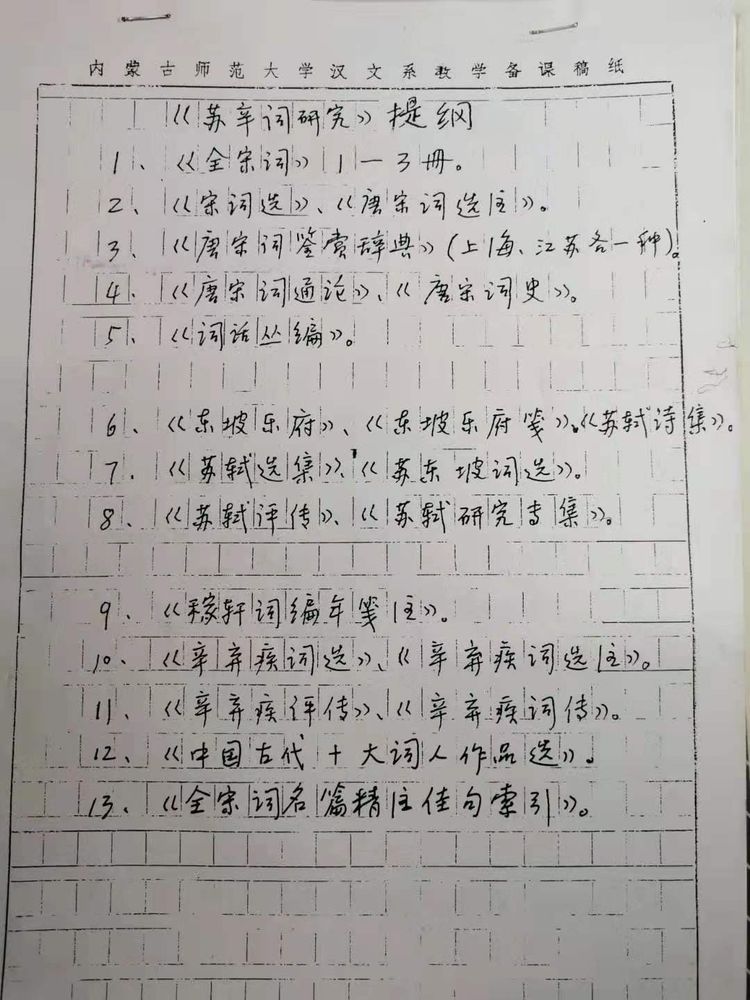 内蒙古师范大学汉文系教学备课稿纸
《苏辛词研究》提纲
1、《全宋词》1—3册。
2、《宋词选》、《唐宋词选注》。
3、《唐宋词鉴赏辞典》(上海、江苏各一种)。
4、《唐宋词通论》、《唐宋词史》。
5、《词话丛编》。
6、《东坡乐府》、《东坡乐府笺》、《苏轼诗集》。
7、《苏轼选集》、《苏东坡词选》。
8、《苏轼评传》、《苏轼研究专集》。
9、《稼轩词编年笺注》。
10、《辛弃疾词选》、《辛弃疾词选注》。
11、《辛弃疾评传》、《辛弃疾词传》。
12、《中国古代十大词人作品选》。
13、《全宋词名篇精注佳句索引》。